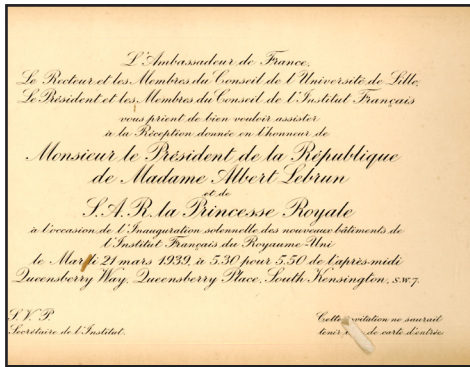 L'Ambassadeur de France,
Le Recteur et les Membres du Conseil de l'Université de Lille,
Le Président et les Membres du Conseil de l'Institut Français
vous prient de bien vouloir assister
à la Réception donnée en l'honneur de
Monsieur le Président de la République
de Madame Albert Lebrun
et de
S.A.R. la Princesse Royale
à l'occasion de l'Inauguration solennelle des nouveaux bâtiments de
l'Institut Français du Royaume-Uni
le Mardi 21 mars 1939, à 5.30 pour 5.50 de l'après-midi
Queensberry Way, Queensberry Place, South Kensington, S.W.7.
Secrétaire de l'Institut.
Cette invitation ne saurait
tenir de carte d'entrée